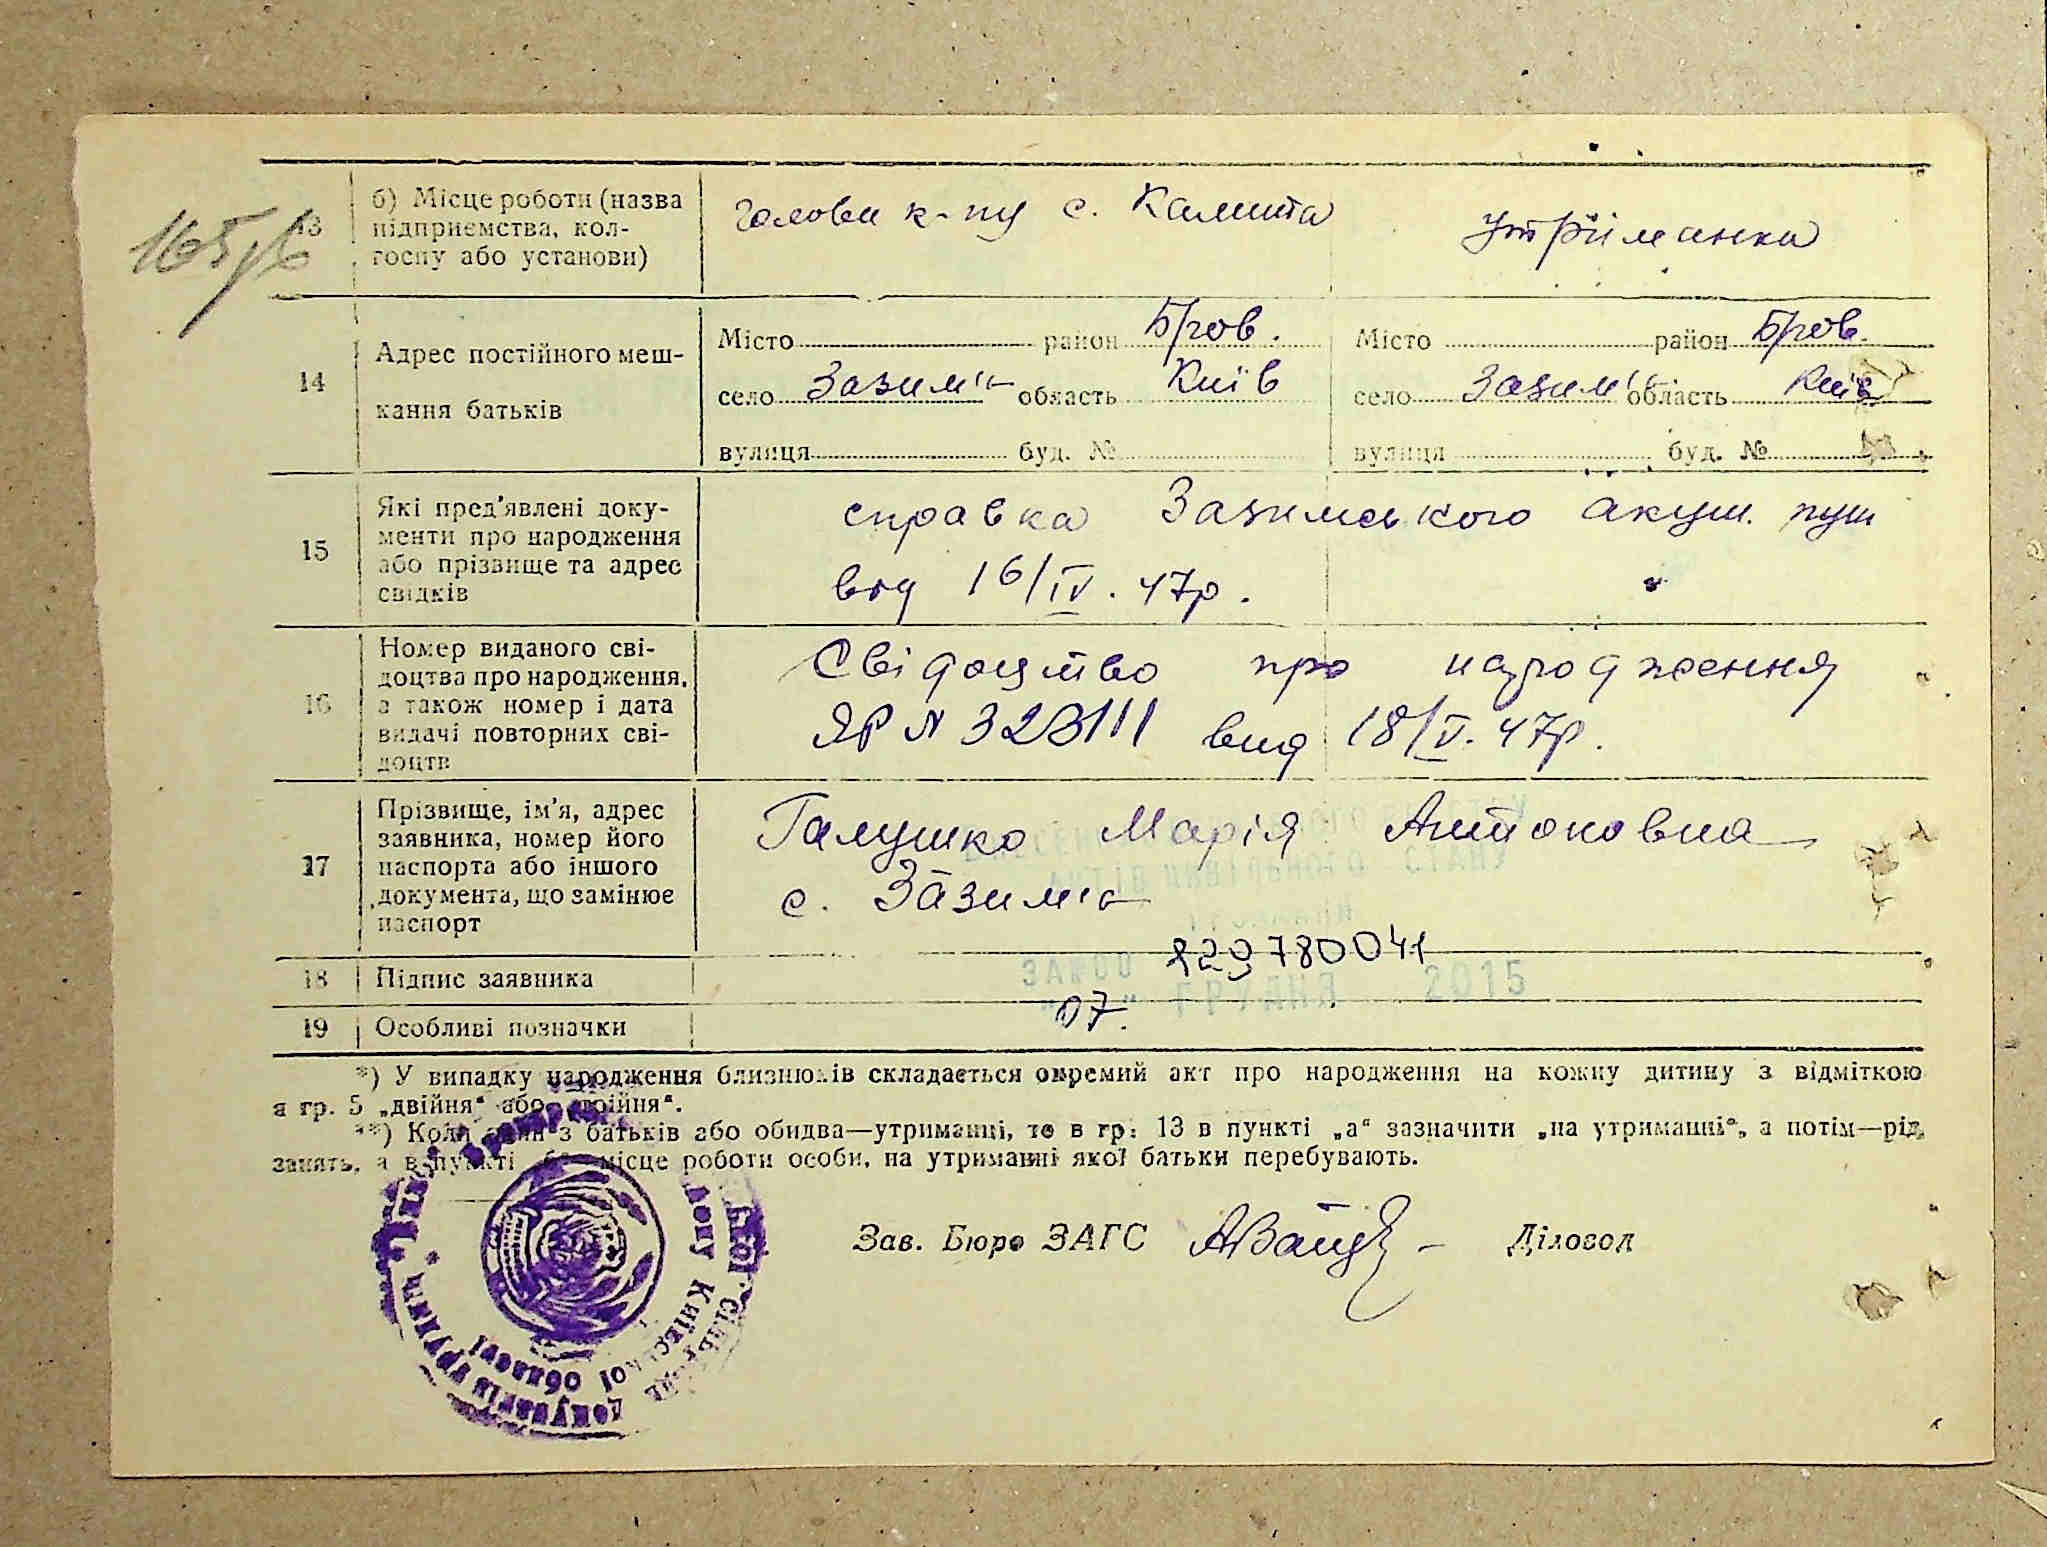 165/в
13
б) Місце роботи (назва
підприємства, кол-
госпу або установи)
голови к-пу с. Калита
Утриманка
14
Адрес постійного меш-
кання батьків
Місто район Бров.
село Зазим'є область Київ
вулиця буд. №
Місто район Бров.
село Зазим'є область Київ
вулиця буд. №
15
Які пред'явлені доку-
менти про народження
або прізвище та адрес
свідків
справка Зазимського акуш. пун
від 16/IV. 47р.
16
Номер виданого сві-
доцтва про народження,
а також номер і дата
видачі повторних сві-
доцтв
Свідоцтво про народження
ЯР N 323111 вид 18/V. 47р.
17
Прізвище, ім'я, адрес
заявника, номер його
паспорта або іншого
документа, що замінює
паспорт
Галушко Марія Антоновна
с. Зазим'є
АКТІВ ЦИВІЛЬНОГО СТАНУ
18
Підпис заявника
ЗА №00 129780041
"07" ГРУДНЯ 2015
19
Особливі позначки
*) У випадку народження близнюків складається окремий акт про народження на кожну дитину з відміткою
в гр. 5 „двійня“ або „трійня“.
**) Коли один з батьків або обидва—утриманці, то в гр. 13 в пункті „а“ зазначити „на утриманні“, а потім—рід
занять, а в пункті „б“ місце роботи особи, на утриманні якої батьки перебувають.
Зав. Бюро ЗАГС
Діловод
Київської області